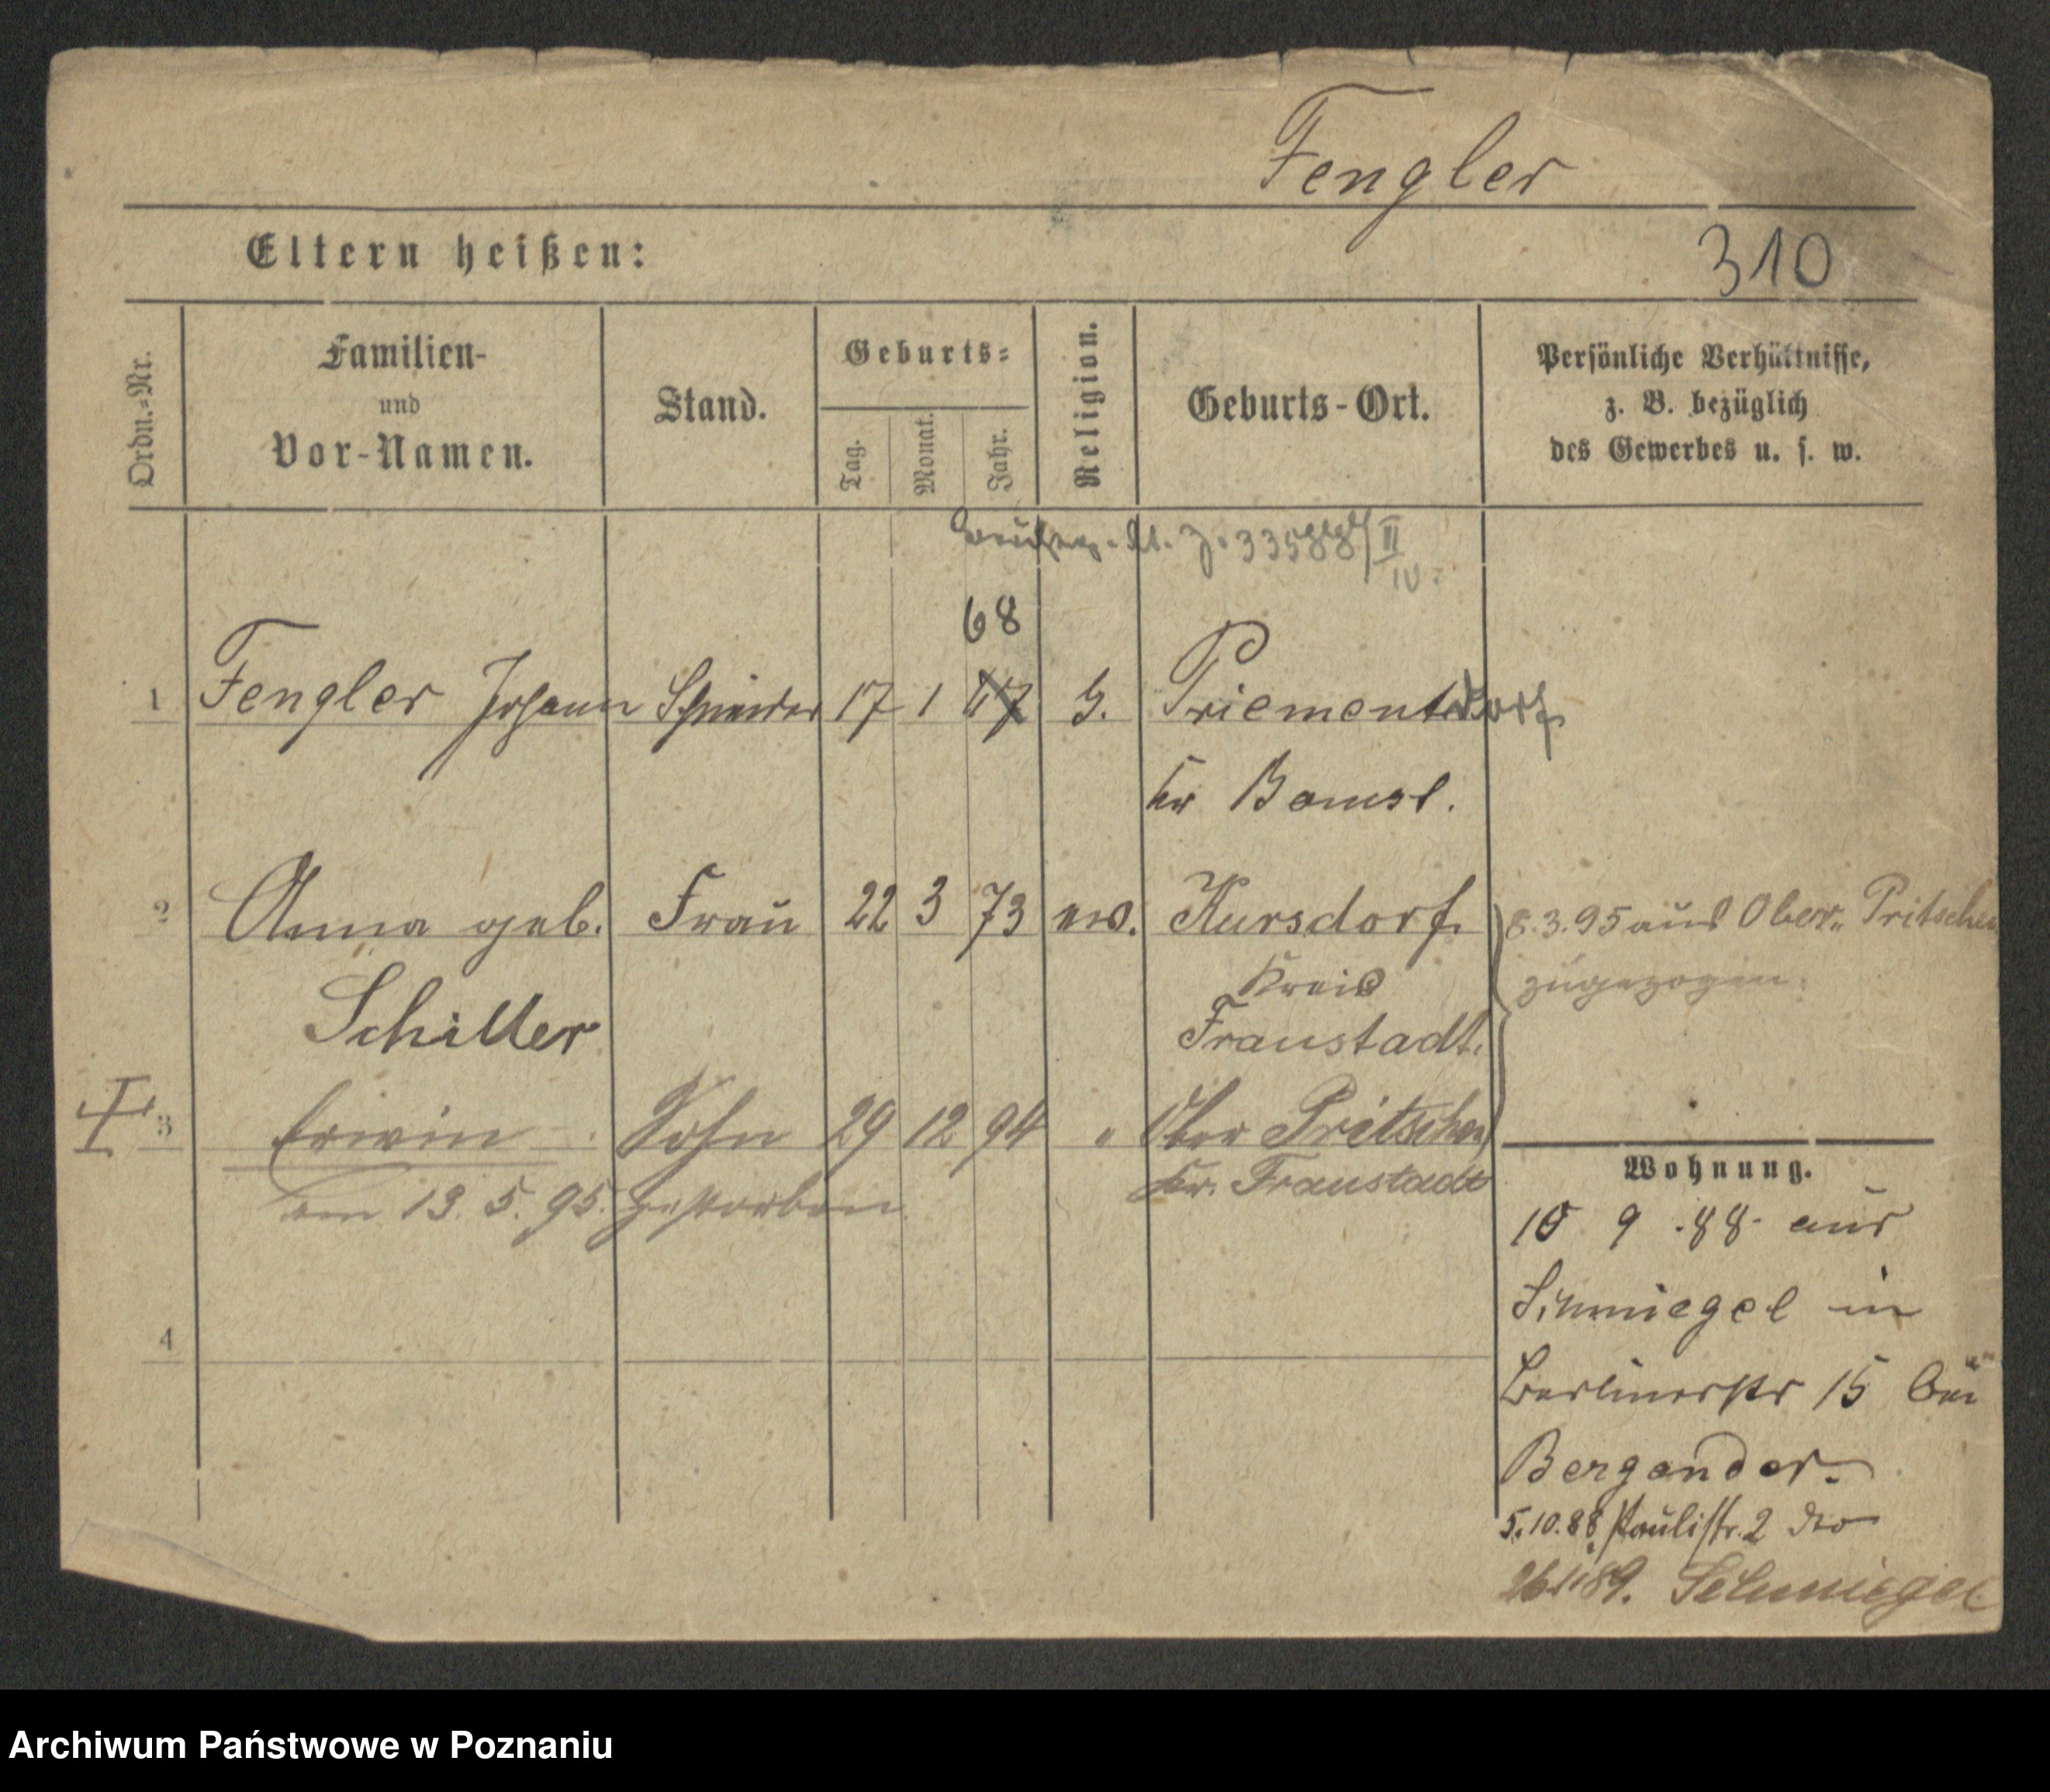 Fengler
310
Eltern heißen:
Ordn.-Nr.
Familien-
und
Vor-Namen.
Stand.
Geburts-
Tag.
Monat.
Jahr.
Religion.
Geburts-Ort.
Persönliche Verhältnisse,
z. B. bezüglich
des Gewerbes u. s. w.
68
1 Fengler Johann 17 1 Priementdorf
Kr Bomst.
2 Anna geb. Frau 22 3 73 ev. Kursdorf
Schiller
Kreis
Fraustadt.
8.3.95 aus Ober-Pritschen
zugezogen.
3 Erwin Sohn 29 12 94 " Ober Pritschen
am 13. 5. 95. gestorben
Kr. Fraustadt
4
Wohnung.
10 9 .88. aus
Schmiegel in
Berlinerstr 15 bei
Bergander.
5.10.88 Paulistr. 2 dto
89. Schmiegel
Archiwum Państwowe w Poznaniu